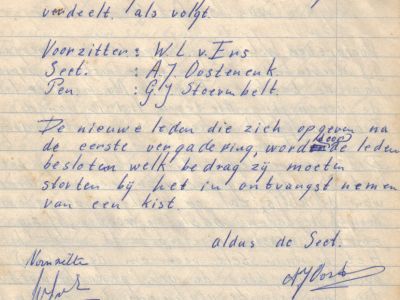 verdeelt. als volgt.
Voorzitter: W. L. v. Ens
Secr. : A. J. Oostenenk.
Pen : G J Stoevenbelt.
De nieuwe leden die zich opgeven na
de eerste vergadering, word door de leden
besloten welk bedrag zij moeten
storten bij het in ontvangst nemen
van een kist.
aldus de Secr.